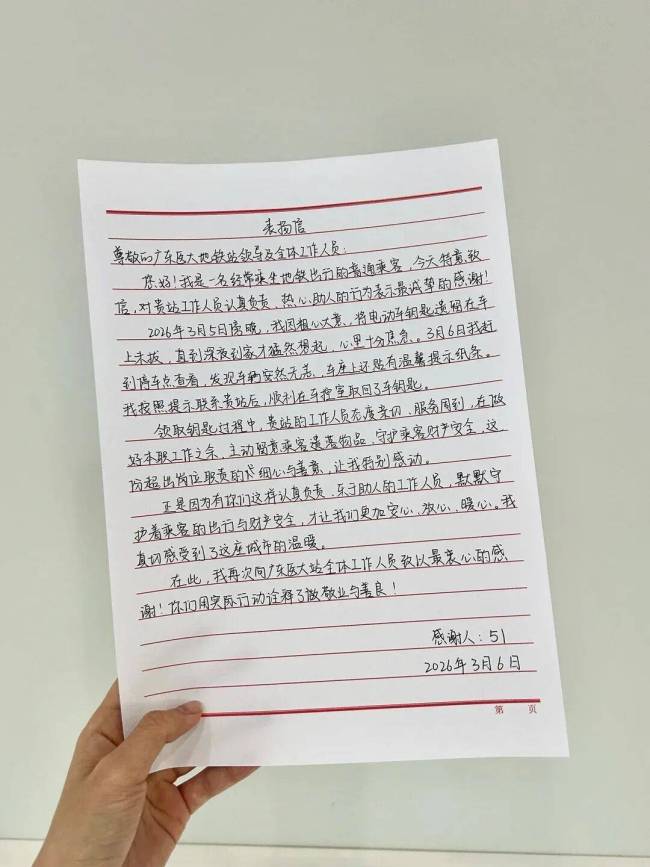 表扬信
尊敬的广东医大地铁站领导及全体工作人员：
你好！我是一名经常乘坐地铁出行的普通乘客，今天特意致
信，对贵站工作人员认真负责、热心助人的行为表示最诚挚的感谢！
2026年3月5日傍晚，我因粗心大意，将电动车钥匙遗留在车
上未拔，直到深夜到家才猛然想起，心里十分焦急。3月6日我赶
到停车点查看，发现车辆安然无恙，车座上还贴有温馨提示纸条。
我按照提示联系贵站后，顺利在车控室取回了车钥匙。
领取钥匙过程中，贵站的工作人员态度亲切，服务周到，在做
好本职工作之余，主动留意乘客遗落物品，守护乘客财产安全，这
份超出岗位职责的细心与善意，让我特别感动。
正是因为有你们这样认真负责、乐于助人的工作人员，默默守
护着乘客的出行与财产安全，才让我们更加安心、放心、暖心。我
真切感受到了这座城市的温暖。
在此，我再次向广东医大站全体工作人员致以最衷心的感
谢！你们用实际行动诠释了敬业与善良！
感谢人：51
2026年3月6日
第 页